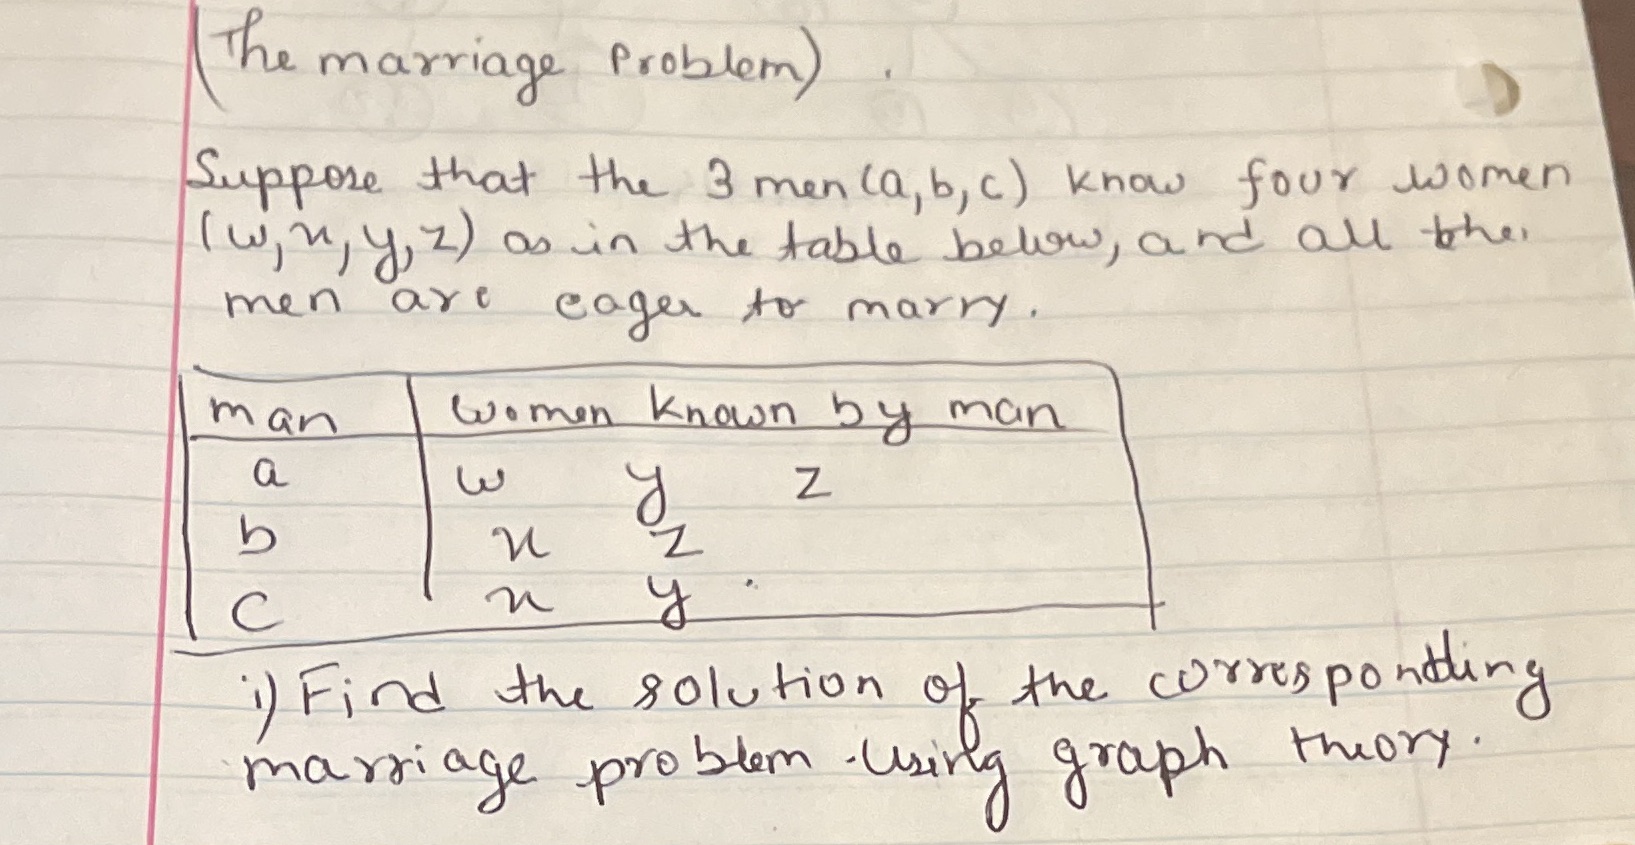 (The marriage Problem).
Suppose that the 3 men (a, b, c) know four women
(w, x, y, z) as in the table below, and all the
men are eager to marry.
man women known by man
a w y z
b x z
c x y.
i) Find the solution of the corresponding
marriage problem using graph theory.